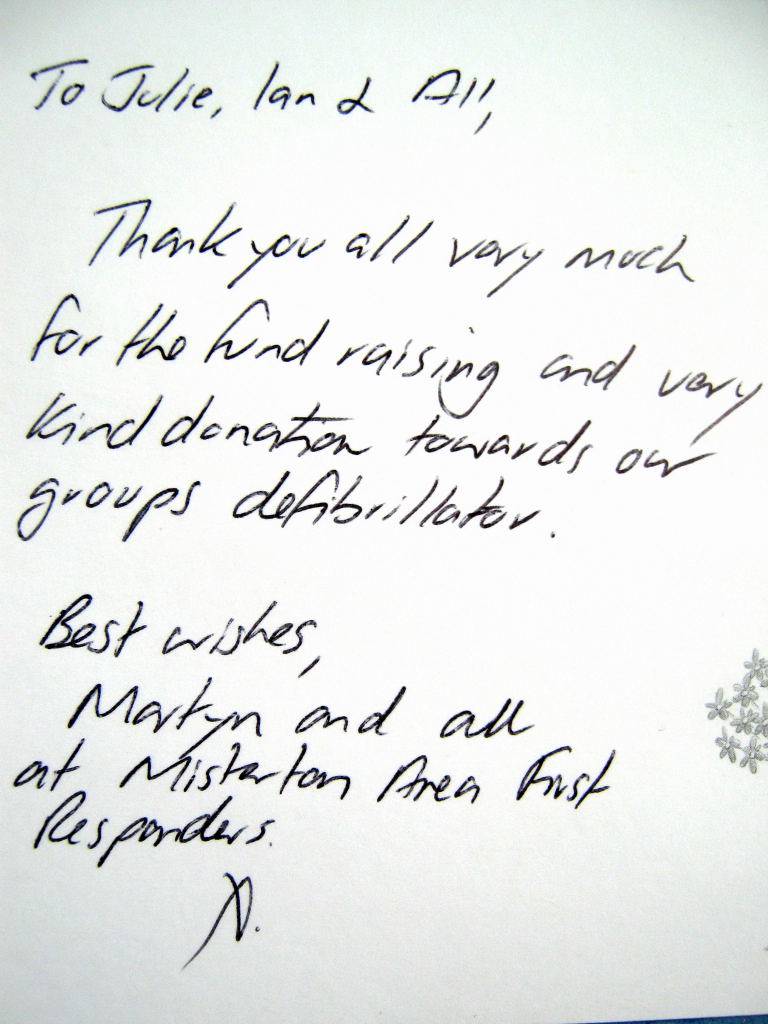 To Julie, Ian & All,
Thank you all very much
for the fund raising and very
kind donation towards our
groups defibrillator.
Best wishes,
Martyn and all
at Misterton Area First
Responders.